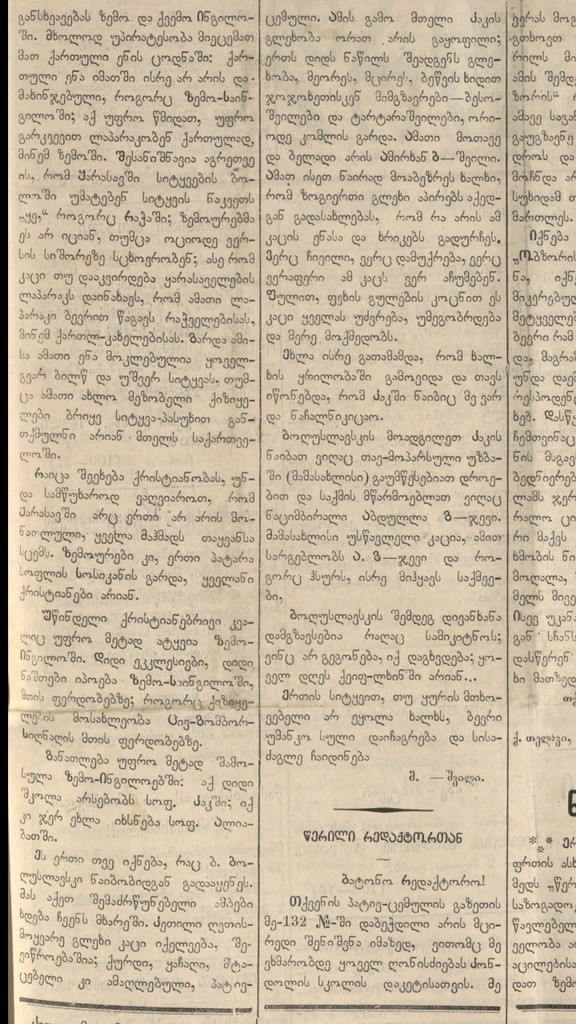 განსხვავებას ზემო და ქვემო ინგილო-
ში. მხოლოდ უპირატესობა მიეცემათ
მათ ქართული ენის ცოდნაში: ქარ-
თული ენა იმათში ისრე არ არის და-
მახინჯებული, როგორც ზემო-საინ-
გილოში; აქ უფრო წმიდათ, უფრო
გარკვევით ლაპარაკობენ ქართულად,
მინემ ზემოში. შესანიშნავია აგრეთვე
ის, რომ ყარასავში სიტყვების ბო-
ლოში უმატებენ სიტყვის ნაკვეთს
„ყე,“ როგორც რაჭაში; ზემოურებმა
ეს არ იციან, თუმცა ოციოდე ვერ-
სის სიშორეზე სცხოვრობენ; ასე რომ
კაცი თუ დააკვირდება ყარასაველების
ლაპარაკს დაინახავს, რომ ამათი ლა-
პარაკი ბევრით წააგავს რაჭველებისას,
მინემ ქართლ-კახელებისას. გარდა ამი-
სა ამათი ენა მოკლებულია ყოველ-
გვარ ბილწ და უშვერ სიტყვას, თუმ-
ცა ამათი ახლო მეზობელი ქიზიყე-
ლები ბრიყვ სიტყვა-პასუხით გან-
თქმულნი არიან მთელს საქართვე-
ლოში.
რაიცა შეეხება ქრისტიანობას, უნ-
და სამწუხაროდ ვაღვიაროთ, რომ
ყარასავში არც ერთი არ არის მო-
ნათლული, ყველა მაჰმადს თაყვანსა
სცემს. ზემოურები კი, ერთი პატარა
სოფლის სოსიკანის გარდა, ყველანი
ქრისტიანები არიან.
უწინდელი ქრისტიანებრივი კვა-
ლიც უფრო მეტად ატყვია ზემო-
ინგილოში. დიდი ეკკლესიები, დიდი
ნაშთები იპოება ზემო-საინგილოში,
მთის ფერდობებზე; როგორც ქიზიყე-
ლების მოსახლეობა ცივ-გომბორ-
სიღნაღის მთის ფერდობებზე.
განათლება უფრო მეტად შამო-
სულა ზემო-ინგილოებში: აქ დიდი
შკოლა არსებობს სოფ. კაკში; იქ
კი ჯერ ეხლა იხსნება სოფ. ალია-
ბათში.
ეს ერთი თვე იქნება, რაც ბ. ბო-
ღუსლავსკი ნაიბობიდგან გადააყენეს.
მას აქეთ შემაძრწუნებელი ამბები
ხდება ჩვენს მხარეში. კეთილი ღვთის-
მოყვარე გლეხი კაცი იქელვება, შე-
ვიწროებაშია; ქურდი, ყაჩაღი, მტა-
ცებელი კი ამაღლებული, პატივ-
ცემული. ამის გამო მთელი კაკის
გლეხობა ორათ არის გაყოფილი;
ერთს დიდს ნაწილს შეადგენს გლე-
ხობა, მეორეს, მცირეს, ბეწვის ხიდით
ჯოჯოხეთისკენ მიმგზავრები—ბესო-
შვილები და ტარტარაშვილები, ორი-
ოდე კომლის გარდა. ამათი მოთავე
და ბელადი არის ამირხან ბ—შვილი.
ამათ ისეთ ნაირად მოაბეზრეს ხალხი,
რომ ზოგიერთი გლეხი აპირებს აქედ-
გან გადასახლებას, რომ რა არის ამ
კაცის ენასა და ხრიკებს გადურჩეს.
ვერც ჩივილი, ვერც დამუქრება, ვერც
ვერაფერი ამ კაცს ვერ აჩუმებენ.
ფულით, ფეხის გულების კოცნით ეს
კაცი ყველას უძვრება, უმეგობრდება
და მერე მოქმედობს.
ეხლა ისრე გათამამდა, რომ ხალ-
ხის ყრილობაში გამოვიდა და თავს
იწონებდა, რომ კაკში ნაიბიც მე ვარ
და ნაჩალნიკიცაო.
ბოღუსლავსკის მოადგილეთ კაკის
ნაიბათ ვიღაც თავ-მოპარსული უზბა-
ში (მამასახლისი) გაუმწესებიათ დროე-
ბით და საქმის მწარმოებლათ ვიღაც
ნაციმბირალი აბდულლა ზ—ჯევი.
მამასახლისი უსწავლელი კაცია, ამით
სარგებლობს ა. ზ—ჯევი და რო-
გორც ჰსურს, ისრე მიჰყავს საქმეე-
ბი,
ბოღუსლავსკის შემდეგ დივანხანა
დამგზავსებია რაღაც სამიკიტნოს;
ვინც არ გეგონება, იქ დაგხვდება; ყო-
ველ დღეს ქეიფ-ლხინში არიან...
ერთის სიტყვით, თუ ყურის მთხო-
ვებელი არ ეყოლა ხალხს, ბევრი
უმანკო სული დაიჩაგრება და სისა-
ძაგლე ჩაიდინება
მ. —შვილი.
წერილი რედაქტორთან
ბატონო რედაქტორო!
თქვენის პატივ-ცემულის გაზეთის
მე-132 №-ში დაბეჭდილი არის მცი-
რედი შენიშვნა იმაზედ, ვითომც მე
ვხმარობდე ყოველ ღონისძიებას კონ-
დოლის სკოლის დაკეტისათვის. მე